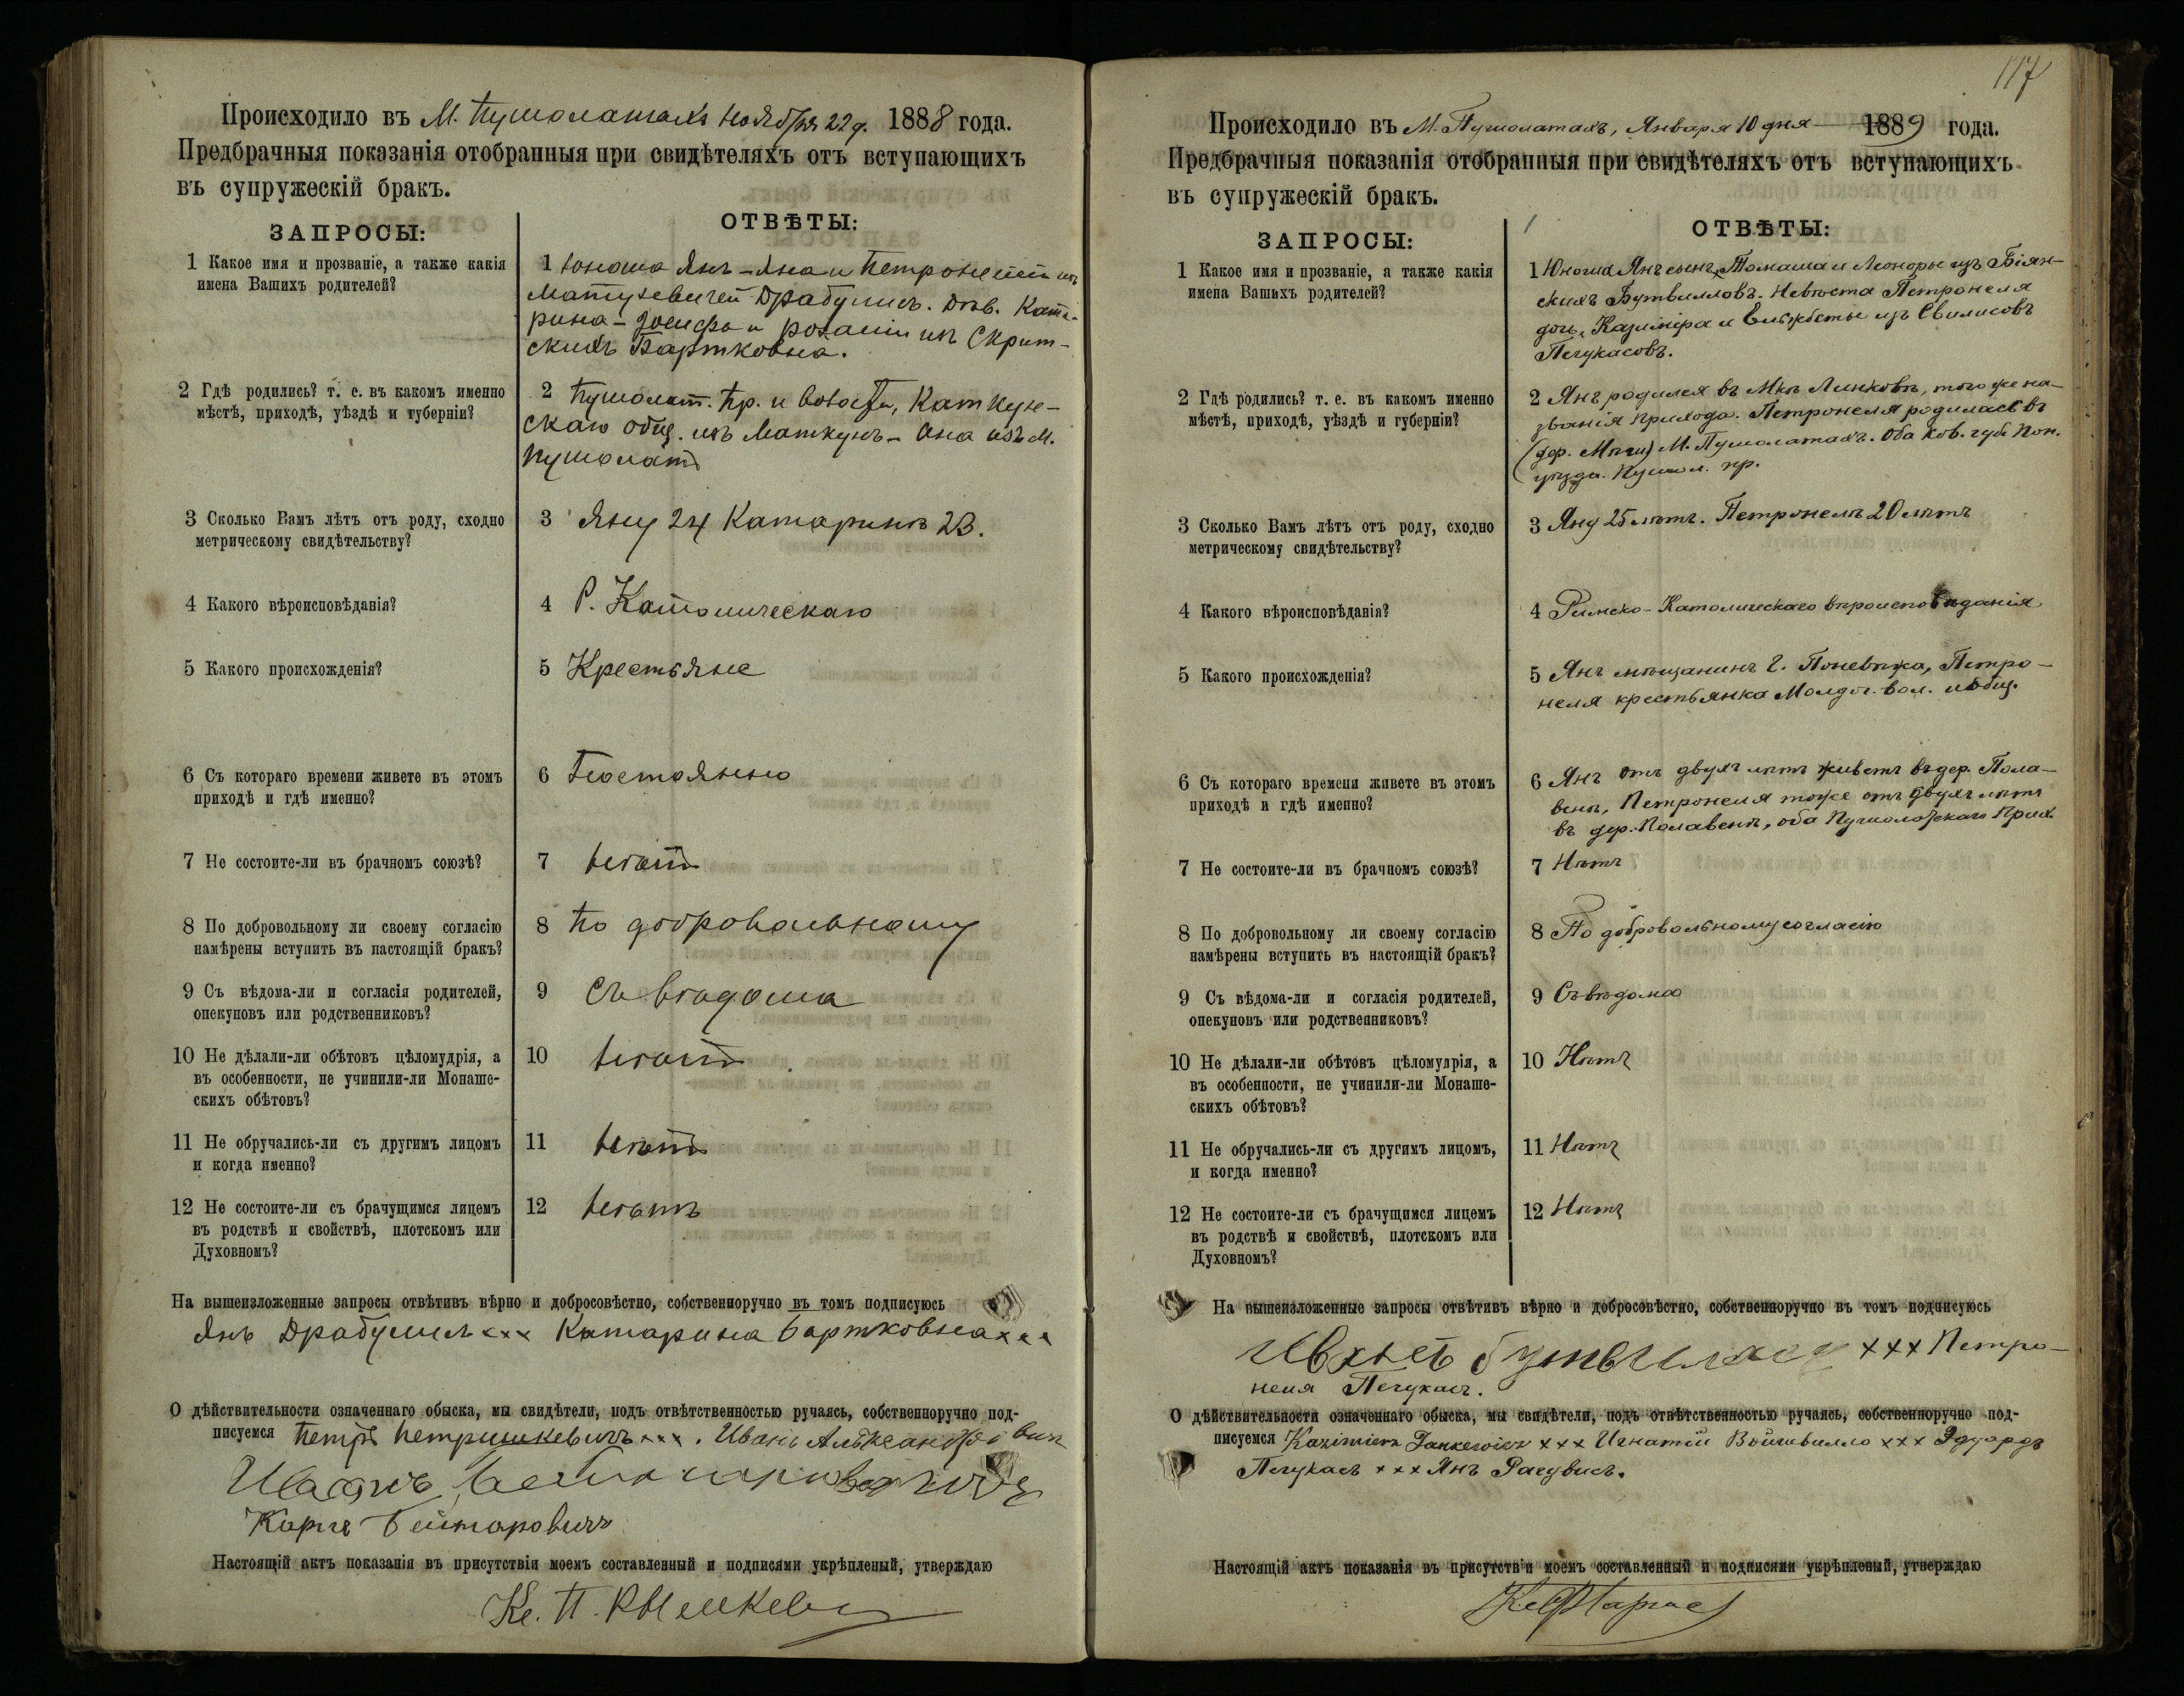 Происходило въ М. Пушолатахъ Ноября 22 д. 1888 года.
Предбрачныя показанія отобранныя при свидѣтеляхъ отъ вступающихъ
въ супружескій бракъ.
ЗАПРОСЫ:
ОТВѢТЫ:
1 Какое имя и прозваніе, а также какія
имена Вашихъ родителей?
1 Юноша Янъ – Яна и Петронели изъ
Матузевичей Драбулисъ. Дѣв. Ката-
рина – Іосифа и Розаліи изъ Скрит-
скихъ Бартковна.
2 Гдѣ родились? т. е. въ какомъ именно
мѣстѣ, приходѣ, уѣздѣ и губерніи?
2 Пушолат. пр. и волости,
общ. изъ – Она изъ М.
Пушолатъ
3 Сколько Вамъ лѣтъ отъ роду, сходно
метрическому свидѣтельству?
3 Яну 24 Катаринѣ 23.
4 Какого вѣроисповѣданія?
4 Р. Католическаго
5 Какого происхожденія?
5 Крестьяне
6 Съ котораго времени живете въ этомъ
приходѣ и гдѣ именно?
6 Постоянно
7 Не состоите-ли въ брачномъ союзѣ?
7 Нѣтъ
8 По добровольному ли своему согласію
намѣрены вступить въ настоящій бракъ?
8 По добровольному
9 Съ вѣдома-ли и согласія родителей,
опекуновъ или родственниковъ?
9 Съ вѣдома
10 Не дѣлали-ли обѣтовъ цѣломудрія, а
въ особенности, не учинили-ли Монаше-
скихъ обѣтовъ?
10 Нѣтъ
11 Не обручались-ли съ другимъ лицомъ
и когда именно?
11 Нѣтъ
12 Не состоите-ли съ брачущимся лицемъ
въ родствѣ и свойствѣ, плотскомъ или
Духовномъ?
12 Нѣтъ
На вышеизложенные запросы отвѣтивъ вѣрно и добросовѣстно, собственноручно въ томъ подписуюсь
Янъ Драбулисъ xxx Катарина Бартковна xxx
О дѣйствительности означеннаго обыска, мы свидѣтели, подъ отвѣтственностью ручаясь, собственноручно под-
писуемся Петръ Петрушкевичъ xxx. Иванъ
Иванъ
Карлъ Бейнаровичъ
Настоящій актъ показанія въ присутствіи моемъ составленный и подписями укрѣпленый, утверждаю
Кс. П.
117
Происходило въ М. Пушолатахъ, Января 10 дня 1889 года.
Предбрачныя показанія отобранныя при свидѣтеляхъ отъ вступающихъ
въ супружескій бракъ.
ЗАПРОСЫ:
ОТВѢТЫ:
1 Какое имя и прозваніе, а также какія
имена Вашихъ родителей?
1 Юноша Янъ сынъ Томаша и Леоноры изъ Біян-
скихъ Бутвилловъ. Невѣста Петронеля
дочь Казиміра и Ельжбеты изъ Свилисовъ
Печукасовъ.
2 Гдѣ родились? т. е. въ какомъ именно
мѣстѣ, приходѣ, уѣздѣ и губерніи?
2 Янъ родился въ Мкѣ Линковѣ, того же на-
званія прихода. Петронеля родилась въ
(дер. ) М. Пушолатахъ. Оба Ков. губ. Пон.
уѣзда. Пушол. пр.
3 Сколько Вамъ лѣтъ отъ роду, сходно
метрическому свидѣтельству?
3 Яну 25 лѣтъ. Петронелѣ 20 лѣтъ
4 Какого вѣроисповѣданія?
4 Римско-Католическаго вѣроисповѣданія
5 Какого происхожденія?
5 Янъ мѣщанинъ г. Поневѣжа, Петро-
неля крестьянка вол. и общ.
6 Съ котораго времени живете въ этомъ
приходѣ и гдѣ именно?
6 Янъ отъ двухъ лѣтъ живетъ въ дер. Пола-
венѣ, Петронеля тоже отъ двухъ лѣтъ
въ дер. Полавенѣ, оба Пушолотскаго Прих.
7 Не состоите-ли въ брачномъ союзѣ?
7 Нѣтъ
8 По добровольному ли своему согласію
намѣрены вступить въ настоящій бракъ?
8 По добровольному согласію
9 Съ вѣдома-ли и согласія родителей,
опекуновъ или родственниковъ?
9 Съ вѣдома
10 Не дѣлали-ли обѣтовъ цѣломудрія, а
въ особенности, не учинили-ли Монаше-
скихъ обѣтовъ?
10 Нѣтъ
11 Не обручались-ли съ другимъ лицомъ,
и когда именно?
11 Нѣтъ
12 Не состоите-ли съ брачущимся лицемъ
въ родствѣ и свойствѣ, плотскомъ или
Духовномъ?
12 Нѣтъ
На вышеизложенные запросы отвѣтивъ вѣрно и добросовѣстно, собственноручно въ томъ подписуюсь
xxx Петро-
неля Печукасъ.
О дѣйствительности означеннаго обыска, мы свидѣтели, подъ отвѣтственностью ручаясь, собственноручно под-
писуемся Kazimierz Jankiewicz xxx Игнатій Войшвилло xxx Эдуардъ
Печукасъ xxx Янъ
Настоящій актъ показанія въ присутствіи моемъ составленный и подписями укрѣпленый, утверждаю